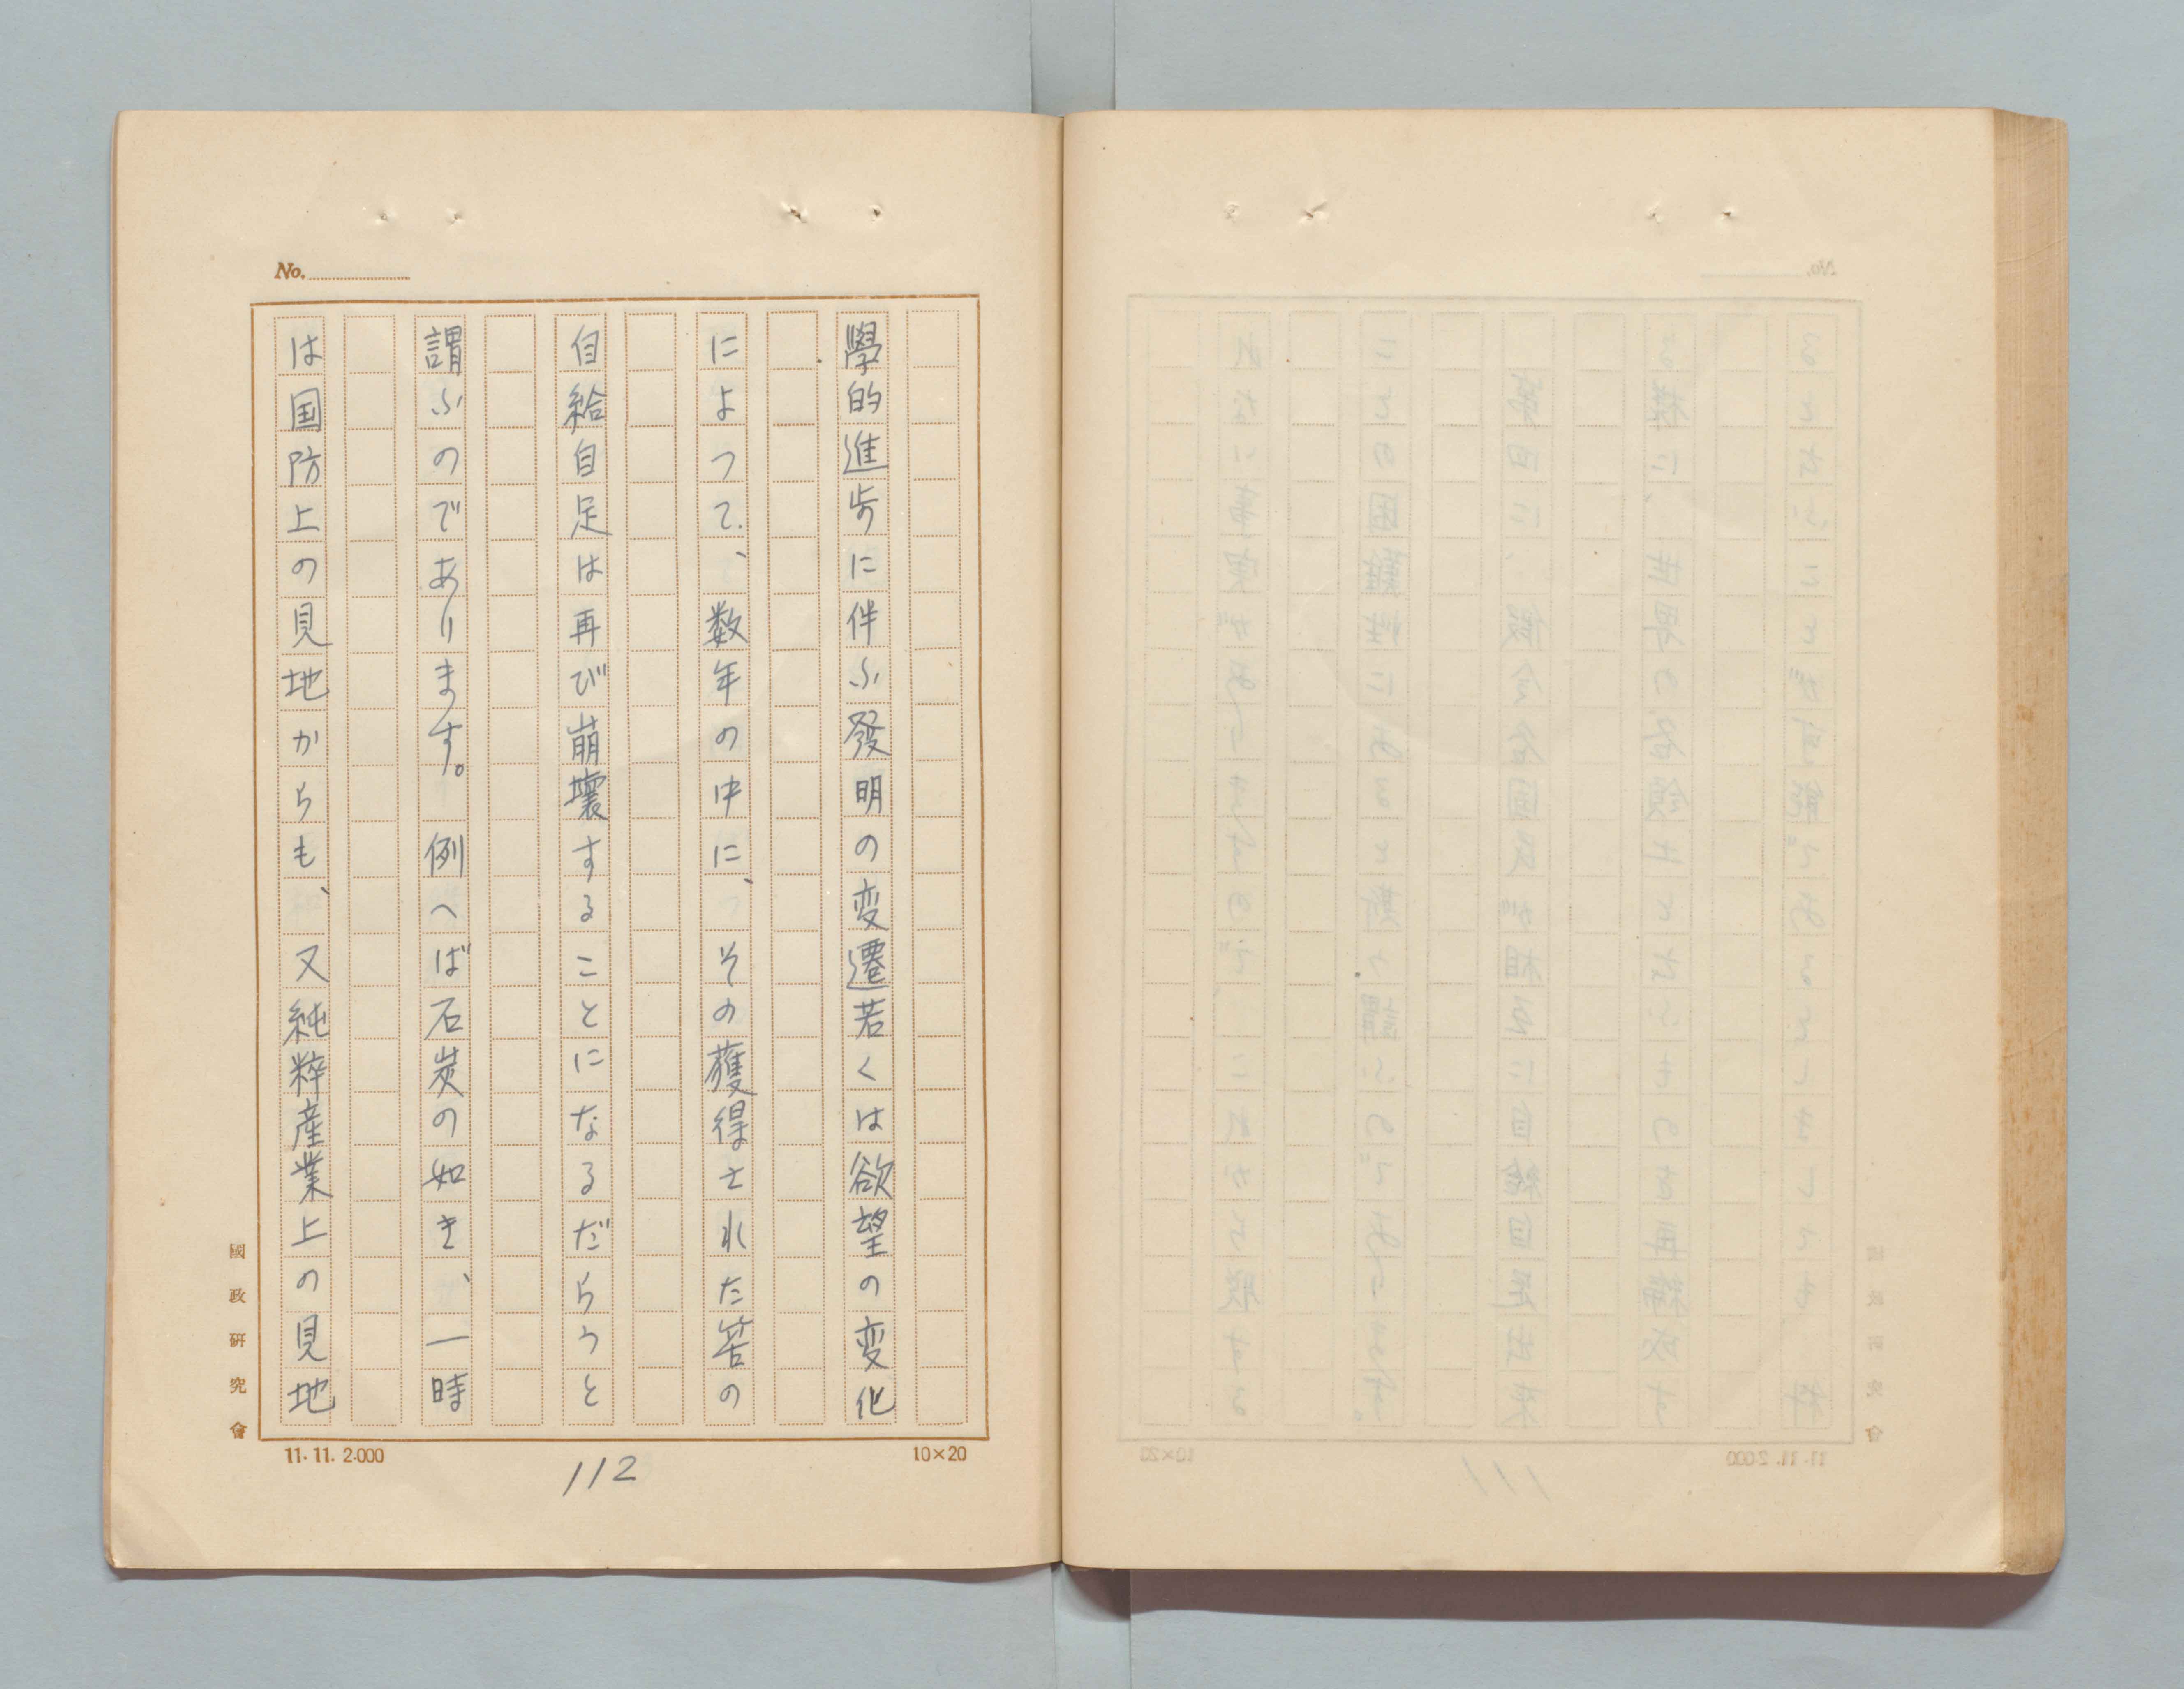 No.
學的進歩に伴ふ發明の変遷若くは欲望の変化
によつて、数年の中に、その獲得された筈の
自給自足は再び崩壞することになるだらうと
謂ふのであります。例へば石炭の如き、一時
は国防上の見地からも、又純粋産業上の見地
國政研究會
11.11.2.000
112
10×20